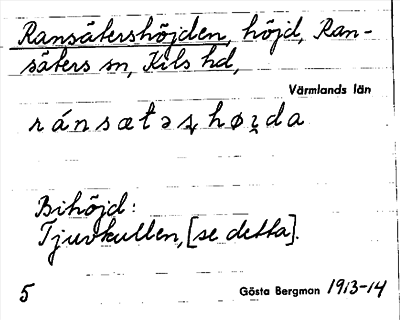 Ransätershöjden, höjd, Ran-
säters sn, Kils hd,
Värmlands län
ránsætəʂhøʐda
Bihöjd:
Tjuvkullen, [se detta].
5
Gösta Bergman 1913-14